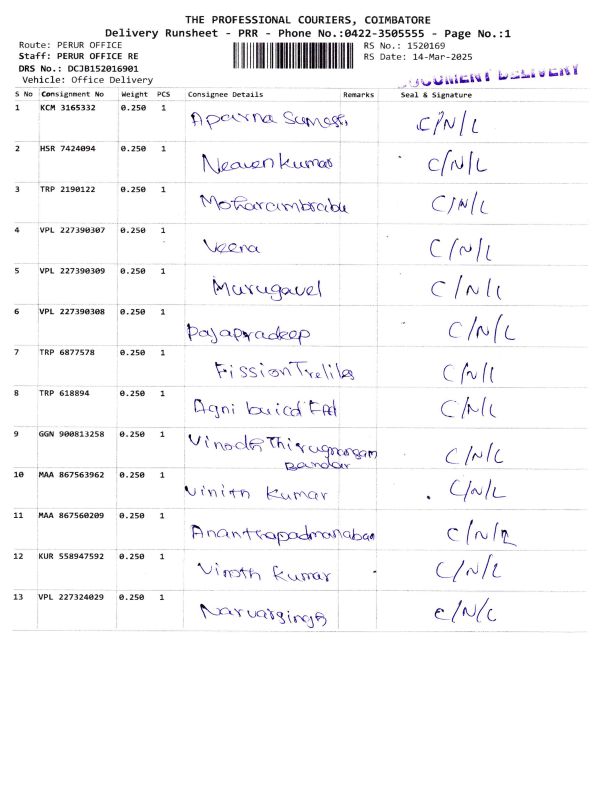 THE PROFESSIONAL COURIERS, COIMBATORE
Delivery Runsheet - PRR - Phone No.:0422-3505555 - Page No.:1
Route: PERUR OFFICE RS No.: 1520169
Staff: PERUR OFFICE RE RS Date: 14-Mar-2025
DRS No.: DCJB152016901
Vehicle: Office Delivery
DOCUMENT DELIVERY
S No Consignment No Weight PCS Consignee Details Remarks Seal & Signature
1 KCM 3165332 0.250 1 Aparna C/N/L
2 HSR 7424094 0.250 1 Naveen kumar C/N/L
3 TRP 2190122 0.250 1 C/N/L
4 VPL 227390307 0.250 1 Veena C/N/L
5 VPL 227390309 0.250 1 Murugavel C/N/L
6 VPL 227390308 0.250 1 Rajapradeep C/N/L
7 TRP 6877578 0.250 1 Fission C/N/L
8 TRP 618894 0.250 1 Agni C/N/L
9 GGN 900813258 0.250 1 C/N/L
10 MAA 867563962 0.250 1 Vinith Kumar C/N/L
11 MAA 867560209 0.250 1 Ananthapadmanaban C/N/L
12 KUR 558947592 0.250 1 Vinoth Kumar C/N/L
13 VPL 227324029 0.250 1 C/N/L